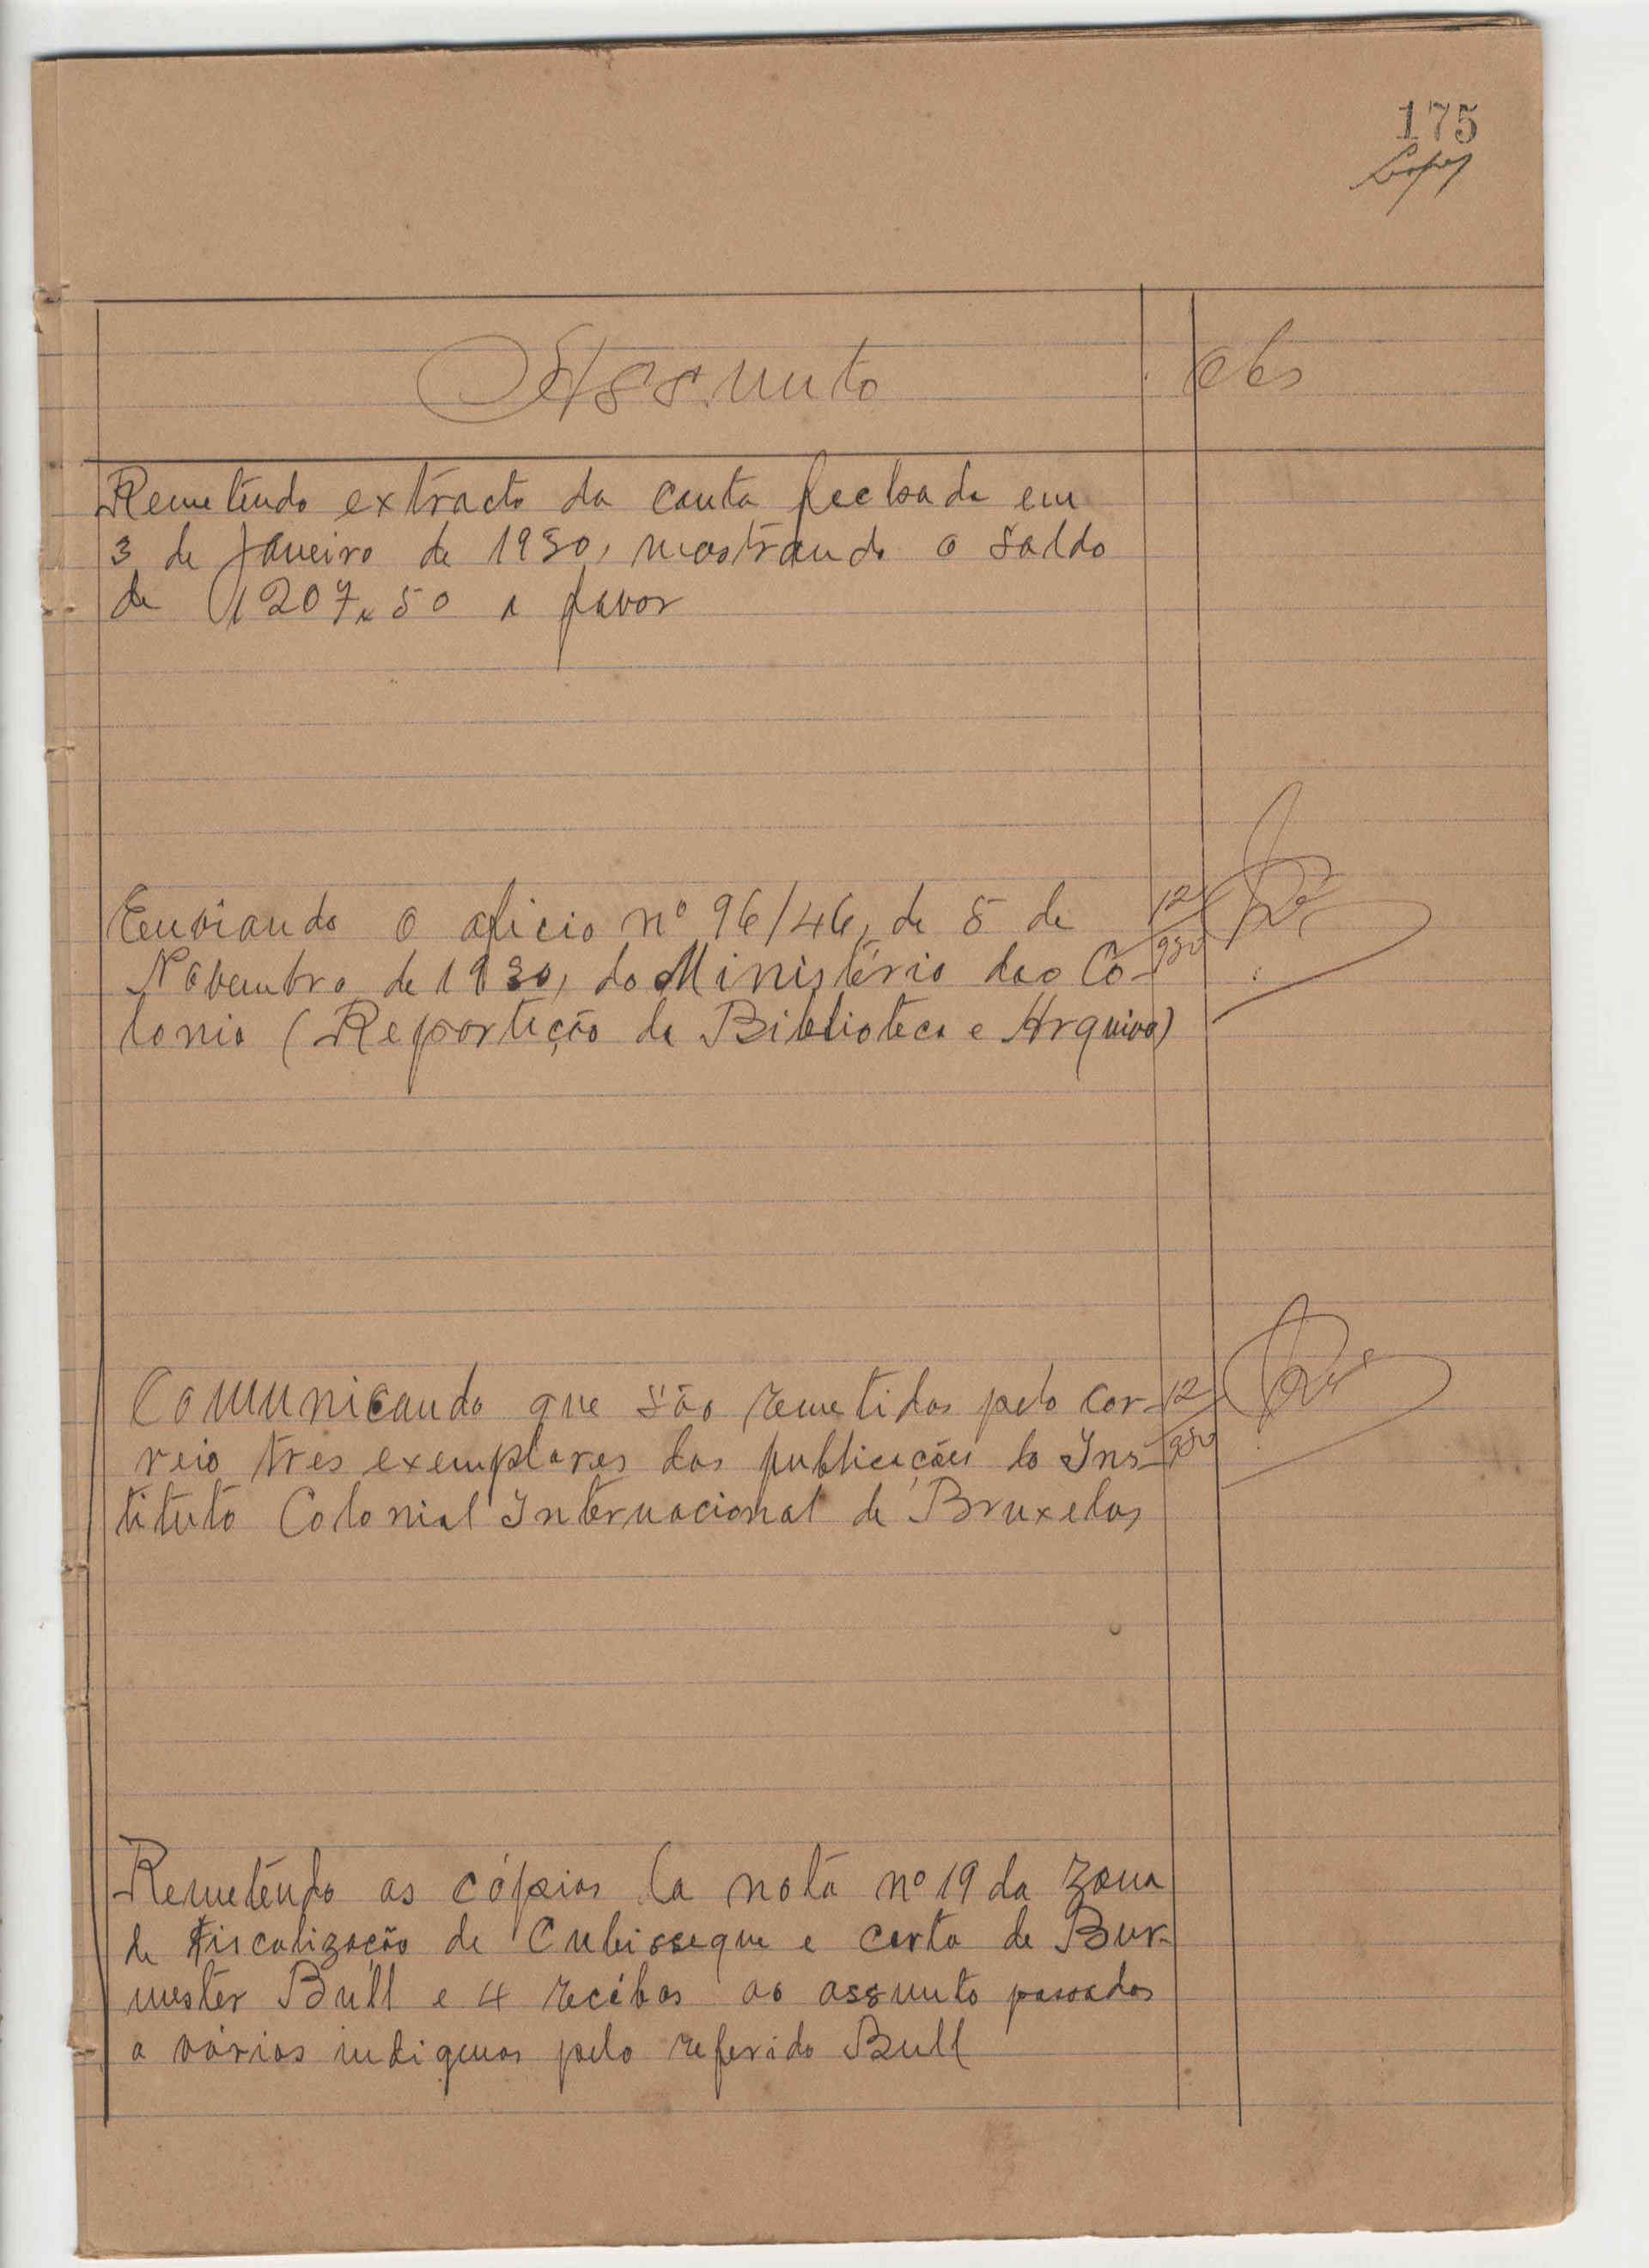 175
Lopes
Assunto
obs
Remetendo extracto da conta fechada em
3 de Janeiro de 1930, mostrando o saldo
de 1207,50 a favor
Enviando o oficio nº 96/46, de 5 de
12
Novembro de 1930, do Ministério das Co-
930
lonia (Repartição da Biblioteca e Arquivo)
Comunicando que são remetidos pelo cor-
12
reio tres exemplares das publicações do Ins-
930
tituto Colonial Internacional de Bruxelas
Remetendo as cópias da nota nº 19 da Zona
de Fiscalização de Cubisseque e carta de Bur-
mester Bull e 4 recibos ao assunto passados
a vários indigenas pelo referido Bull